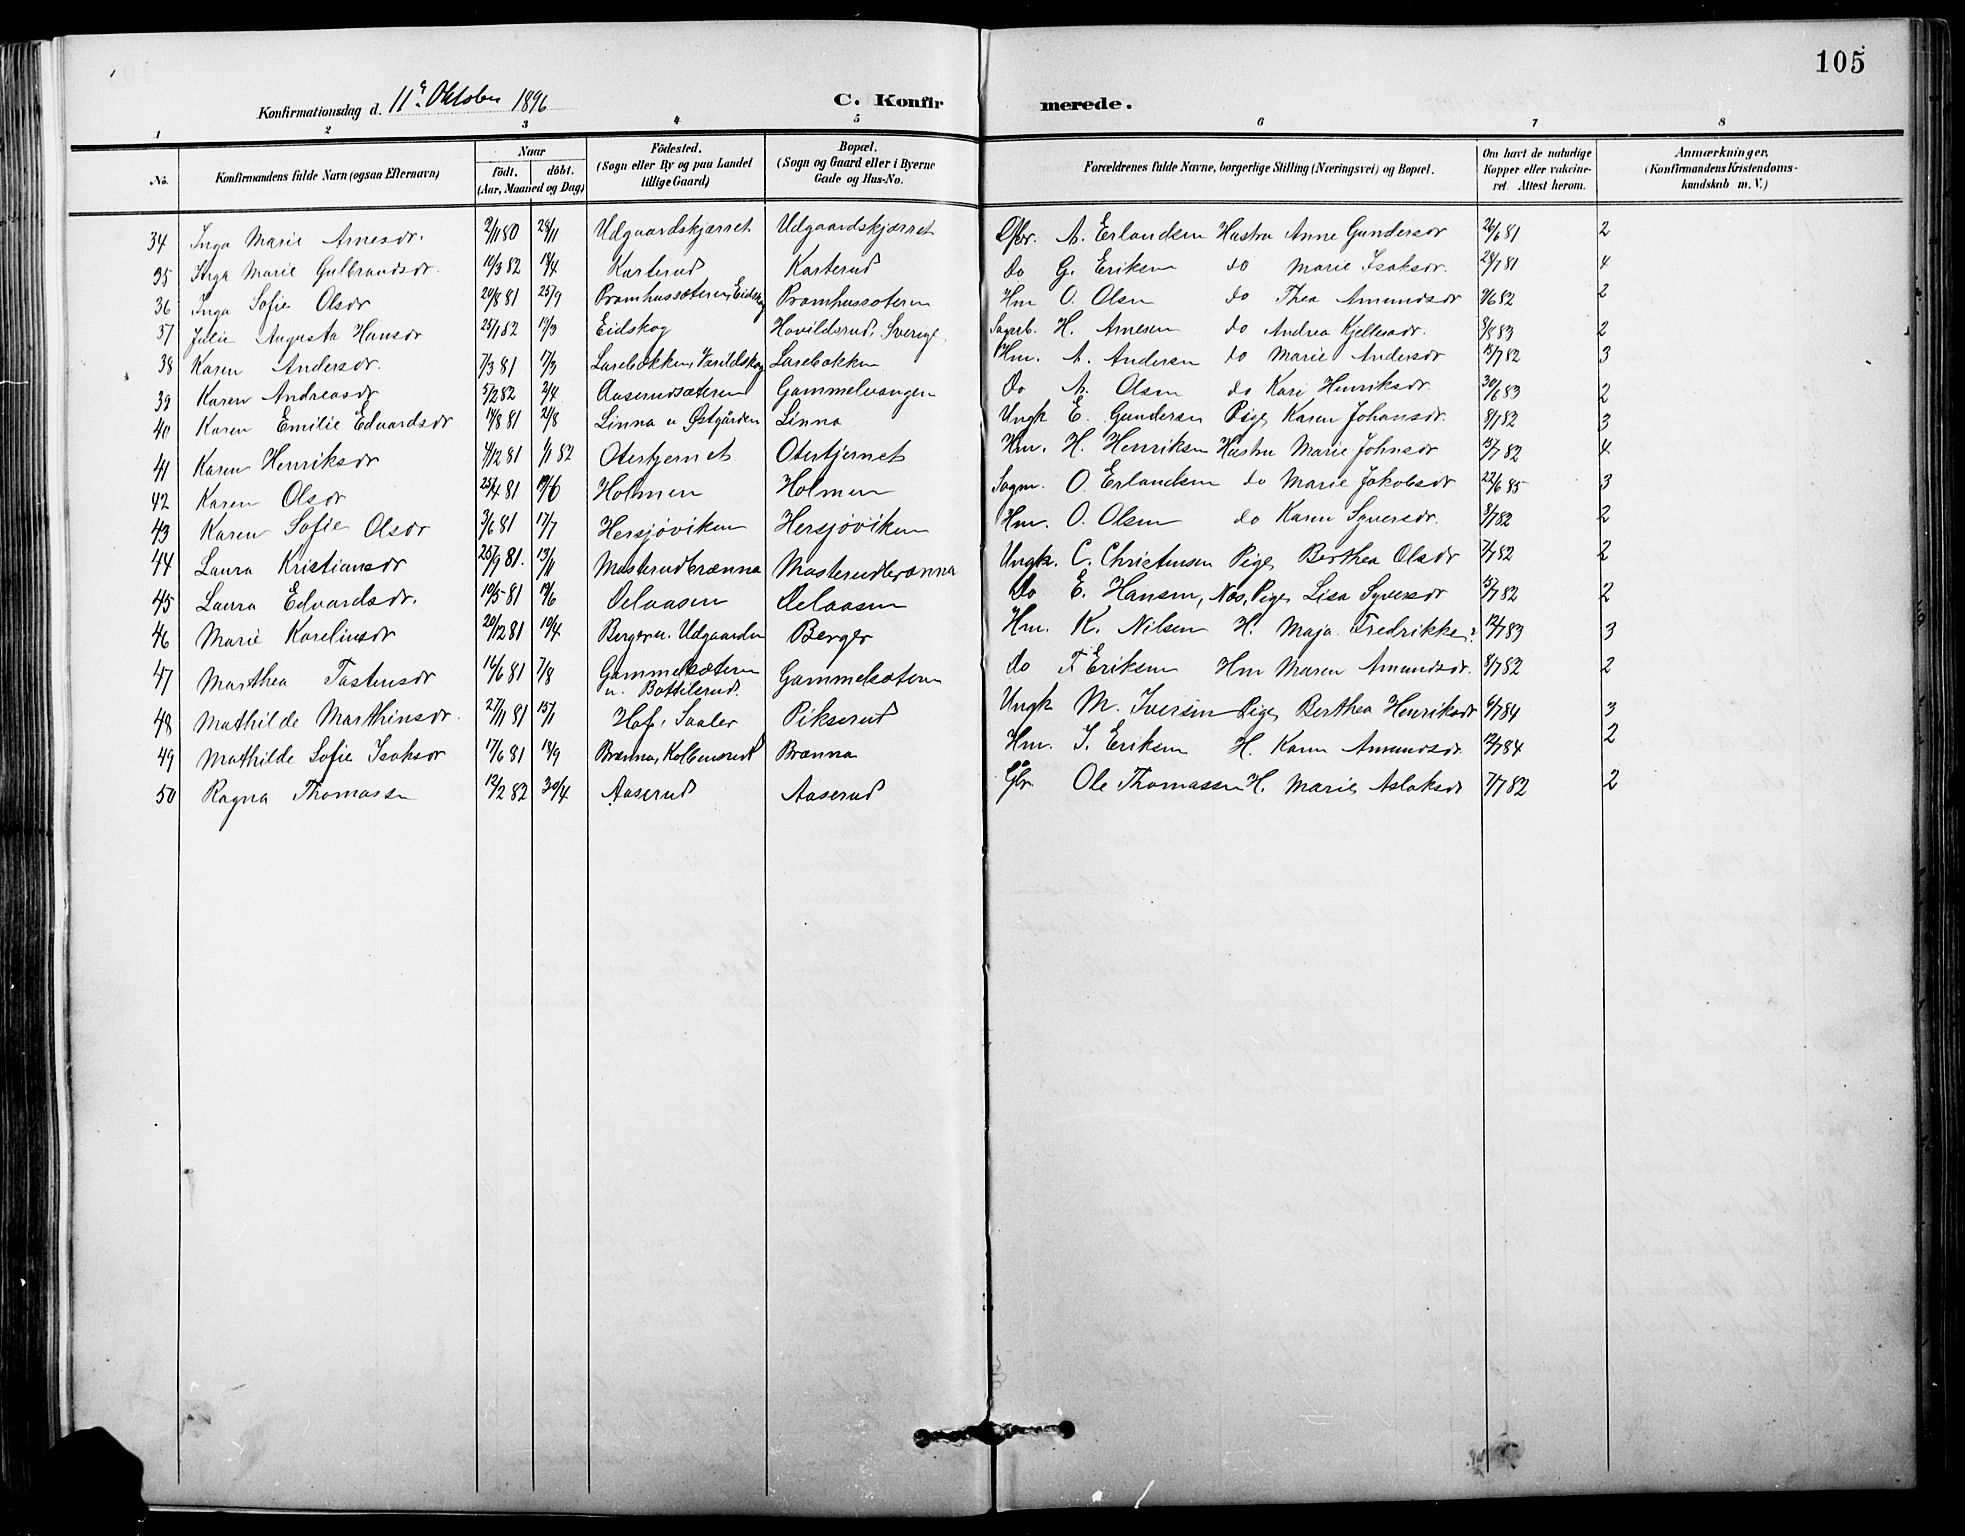 105
Konfirmationsdag d. 11e Oktober 1896 C. Konfir merede.
1 2 3 4 5 6 7 8
No. Konfirmandens fulde Navn (ogsaa Efternavn) Naar födt. döbt. (Aar, Maaned og Dag) Födested. (Sogn eller By og paa Landet tillige Gaard) Bopæl. (Sogn og Gaard eller i Byerne Gade og Hus-No. Forældrenes fulde Navne, borgerlige Stilling (Næringsvei) og Bopæl. Om havt de naturlige Kopper eller vakcineret. Attest herom. Anmærkninger. (Konfirmandens Kristendomskundskab m. V.)
34 Inga Marie Arnesdr. 2/11 80 28/11 Udgaardskjærret Udgaardskjærret A. Erlandsen Hustru Anne Gundersdr 26/6 81 2
35 Inga Marie Gulbrandsdr. 10/3 82 Karterud Karterud Do G. Eriksen do Marie Isaksdr. 4
36 Inga Sofie Olsdr 20/8 81 25/9 Pramhussæteren, Eidskog Pramhussæteren Hm O. Olsen do Thea Amundsdr 2
37 Julie Augusta Hansdr 25/1 82 12/3 Eidskog Havildsrud, Sverige Sagarb. H. Arnesen do Andrea Kjellesdr. 2
38 Karen Andersdr. 7/3 81 17/3 Larsbakken, Varildskog Larsbakken Hm. A. Andersen do Marie Andersdr 15/7 82 3
39 Karen Andreasdr 5/2 82 2/4 Aaserudsæteren Gammelvangen Do A. Olsen do Kari Henriksdr 30/6 83 2
40 Karen Emilie Edvardsdr 14/8 81 21/8 Linna u Østgården Linna Ungk E. Gundersen Pige Karen Johansdr. 8/7 82 3
41 Karen Henriksdr 4/12 81 1/1 82 Otertjernet Otertjernet Hm. H. Henriksen Hustru Marie Johnsdr 15/7 82 4
42 Karen Olsdr 25/4 81 Holmen Holmen Sagm. O. Erlandsen do Marie Jakobsdr 22/6 85 3
43 Karen Sofie Olsdr 3/6 81 17/7 Hersjøviken Hersjøviken Hm. O. Olsen do Karen Syversdr. 8/7 82 2
44 Laura Kristiansdr 25/9 81. 13/11 Masterudbrænna Masterudbrænna Ungk. C. Christensen Pige Berthea Olsdr 7/7 82 2
45 Laura Edvardsdr. 10/5 81 Delaasen Delaasen Do E. Hansen, Næs, Pige Lisa Syversdr 15/7 82 2
46 Marie Karelinsdr 20/12 81 10/4 Berger u. Udgaarden Berger Hm. K. Nilsen H. Maja Fredrikke 12/7 83 3
47 Marthea Tostensdr 16/6 81 7/8 Gammelsæteren u. Bottilsrud. Gammelsæteren Do T. Eriksen Hm Maren Amundsdr. 8/7 82 2
48 Mathilde Marthinsdr. 27/1 81 Hof, Soolør Pikserud Ungk M. Iversen Pige Berthea Henriksdr 6/7 84 3
49 Mathilde Sofie Isaksdr 17/6 81 18/9 Brænna, Kolbensrud Brænna Hm. I. Eriksen H. Karen Amundsdr 12/7 84 2
50 Ragna Thomassen 12/2 82 30/4 Aaserud Aaserud Gbr Ole Thomassen H. Marie Aslaksdr 7/7 82 2